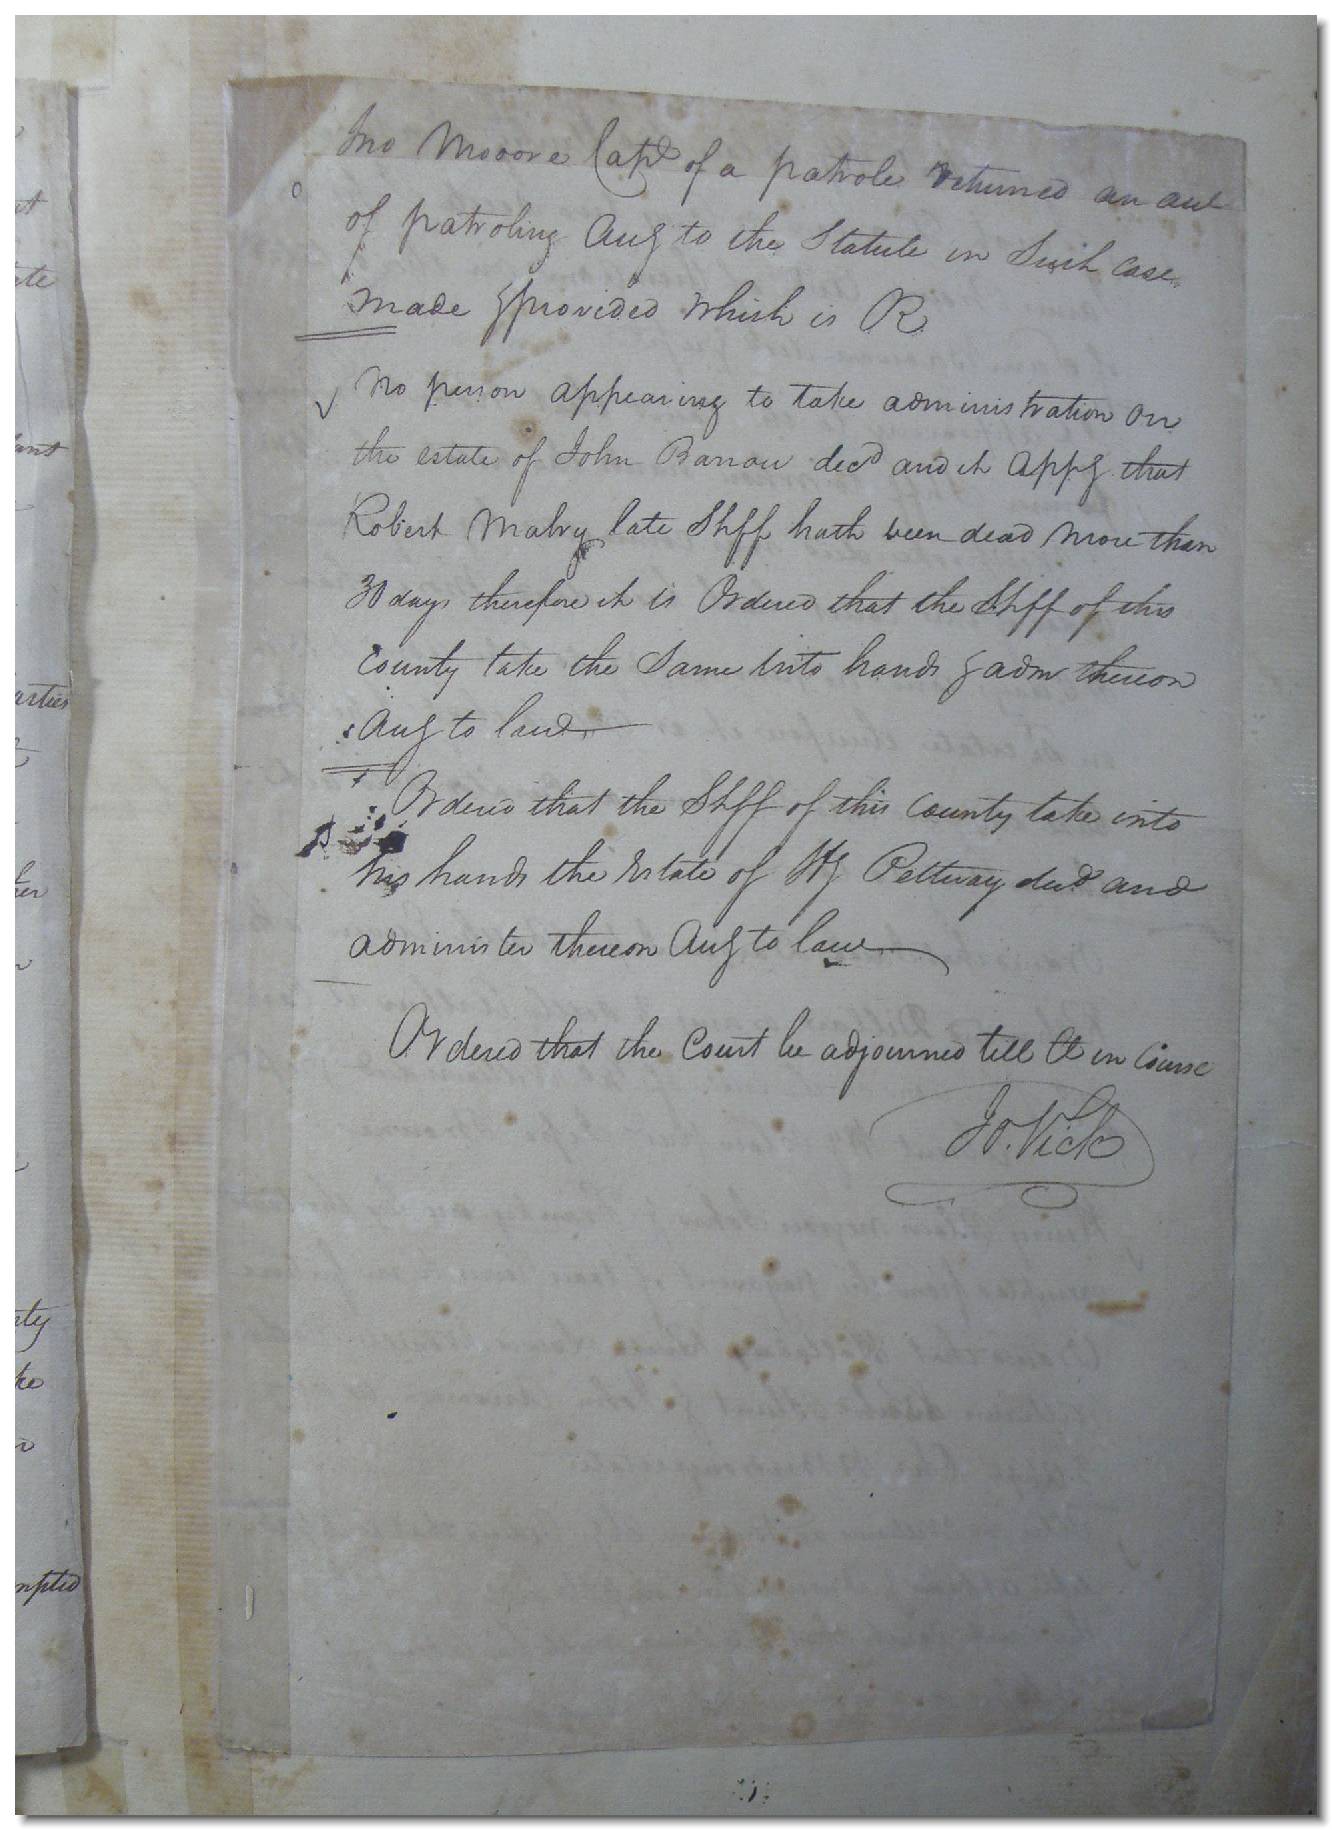 Jno Mooore Capt of a patrole returned an acct
of patroling Aug to the Statute in Such case
made & provided which is R
No person appearing to take administration on
the estate of John Barrow decd and it Appg that
Robert Mabry late Shff hath been dead more than
30 days therefore it is Ordered that the Shff of this
County take the Same into hands & adm thereon
Aug to law
Ordered that the Shff of this County take into
his hands the Estate of Hy Pettway decd and
administer thereon Aug to law
Ordered that the Court be adjourned till Ct in Course
Jo. Vick
arties
ter
nty
ke
mpted